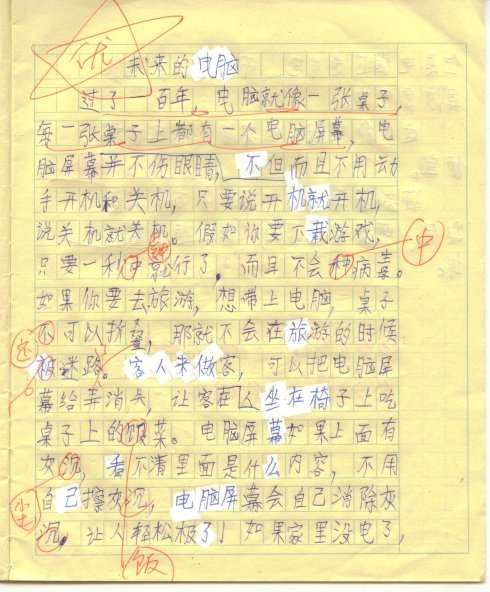 优
未来的电脑
过了一百年，电脑就像一张桌子，
每一张桌子上都有一个电脑屏幕，电
脑屏幕并不伤眼睛，不但而且不用动
手开机和关机，只要说开机就开机，
说关机就关机。假如你要下载游戏，
只要一秒中就行了，而且不会种病毒。
钟
中
如果你要去旅游，想带上电脑，桌子
不可以折叠，那就不会在旅游的时候
还
被迷路。客人来做客，可以把电脑屏
幕给弄消失，让客在人坐在椅子上吃
桌子上的饭菜。电脑屏幕如果上面有
灰沉，看不清里面是什么内容，不用
自己擦灰沉，电脑屏幕会自己消除灰
尘
沉，让人轻松极了！如果家里没电了，
饭